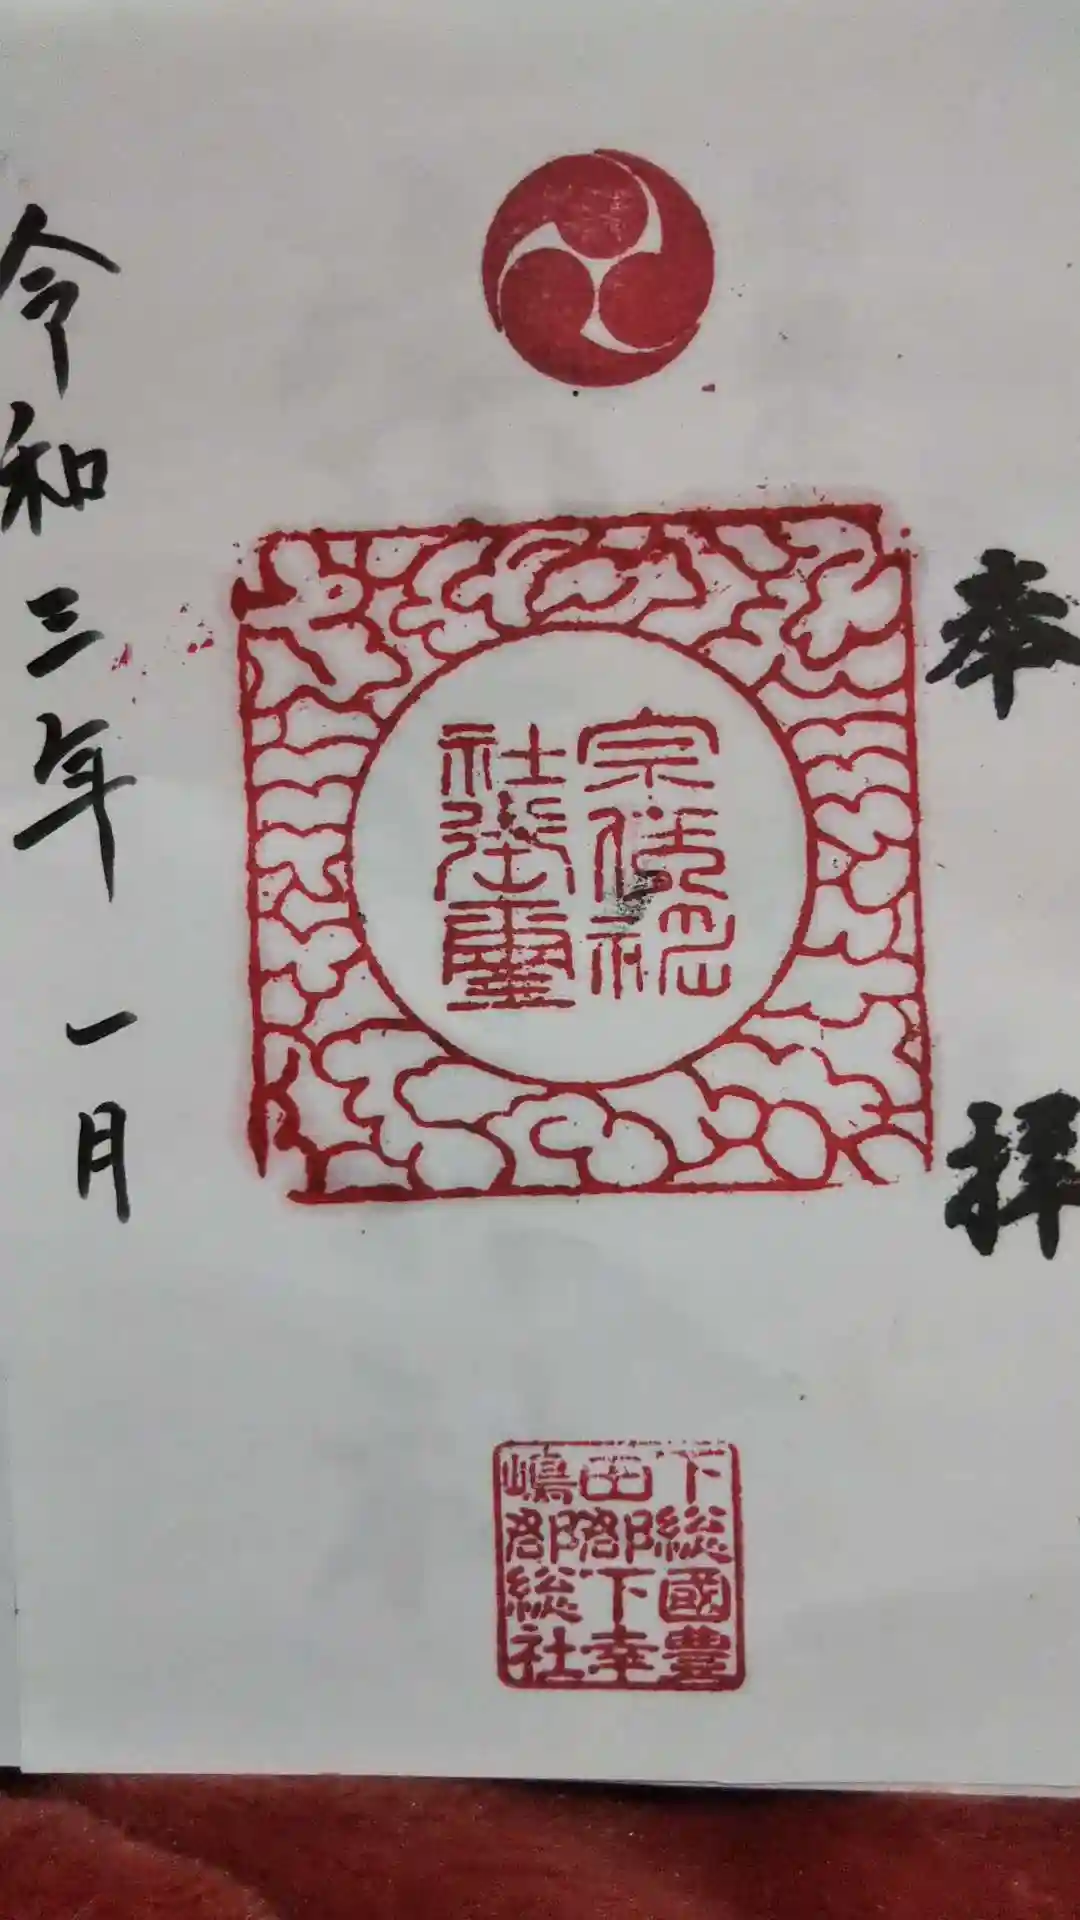 奉拝
宗任神
社璽
下総國豊
田郡下幸
嶋郡総社
令和三年一月